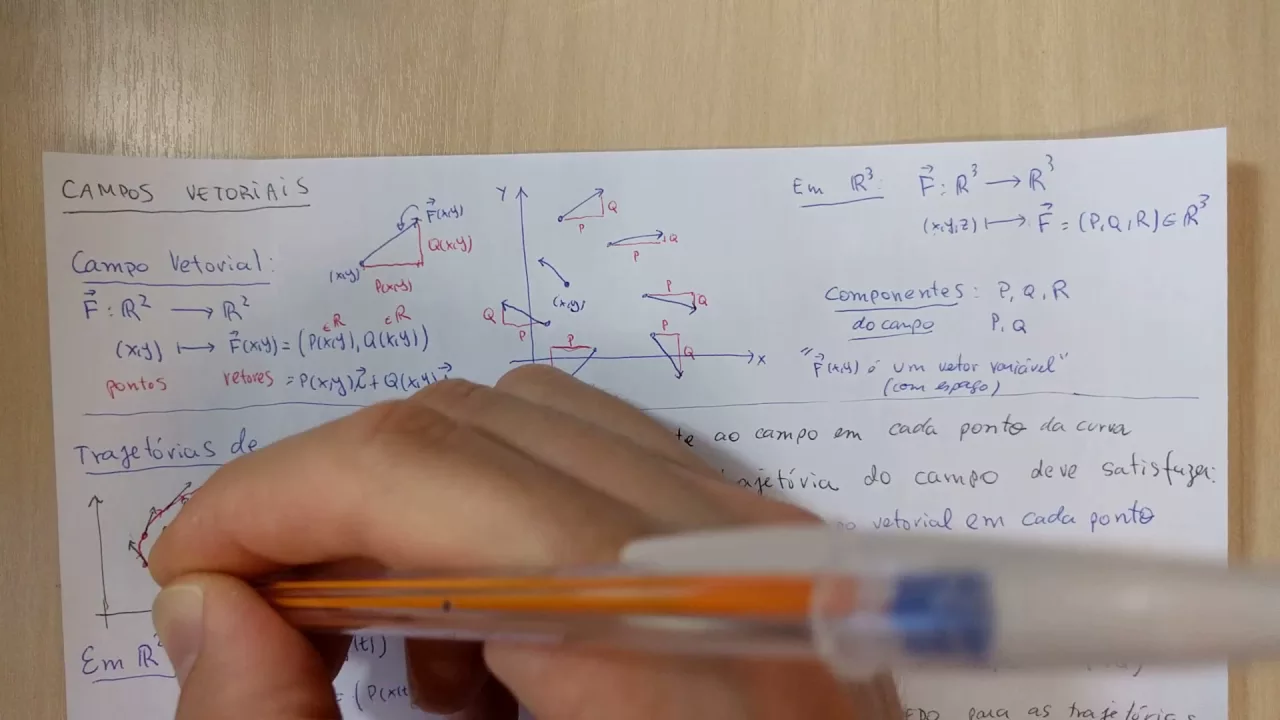 CAMPOS VETORIAIS
Campo Vetorial:
F⃗ : ℝ² → ℝ²
(x,y) ↦ F⃗(x,y) = (P(x,y), Q(x,y))
∈ℝ ∈ℝ
pontos vetores = P(x,y)i⃗ + Q(x,y)j⃗
F⃗(x,y)
(x,y)
Q(x,y)
P(x,y)
Y
Q
P
Q
P
(x,y)
P
Q
Q
P
P
P
Q
x
Em ℝ³: F⃗ : ℝ³ → ℝ³
(x,y,z) ↦ F⃗ = (P,Q,R) ∈ ℝ³
Componentes: P, Q, R
do campo P, Q
"F⃗(x,y) é um vetor variável"
(com espaço)
Trajetórias de
ao campo em cada ponto da curva
do campo deve satisfazer:
vetorial em cada ponto
Em ℝ²
(t)
= (P(x(t
para as trajetórias